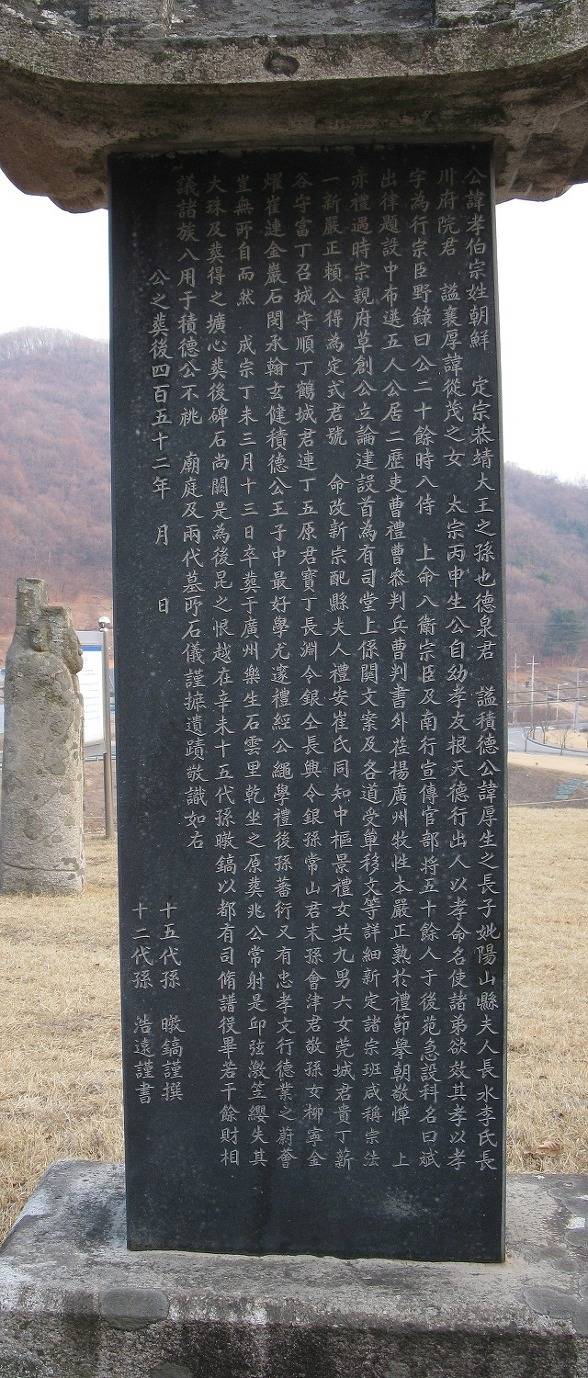 公諱孝伯宗姓朝鮮 定宗恭靖大王之孫也德泉君 謚積德公諱厚生之長子妣陽山縣夫人長水李氏長
川府院君 謚襄厚諱從茂之女 太宗丙申生公自幼孝友根天德行出人以孝命名使諸弟欲效其孝以孝
字為行宗臣野錄曰公二十餘時入侍 上命入衛宗臣及南行宣傳官部將五十餘人于後苑急設科名曰斌
出律題設中布選五人公居二歷吏曹禮曹叅判兵曹判書外莅楊廣州牧性本嚴正熟於禮節舉朝敬憚 上
亦禮過時宗親府草創公立論建設首為有司堂上係関文案及各道受單移文等詳細新定諸宗班咸稱宗法
一新嚴正賴公得為定式君號 命改新宗配縣夫人禮安崔氏同知中樞景禮女共九男六女莞城君貴丁新
谷守富丁召城守順丁鶴城君連丁五原君寶丁長淵令銀仝長興令銀孫常山君末孫會津君敬孫女柳寧金
燿崔漣金巖石閔承翰玄健積德公王子中最好學尤邃禮經公繩學禮後孫蕃衍又有忠孝文行德業之蔚薈
豈無所自而然 成宗丁未三月十三日卒葬于廣州樂生石雲里乾坐之原葬兆公常射是邱弦激笠纓失其
大珠及葬得之壙心葬後碑石尚闕是為後昆之恨越在辛未十五代孫暾鎬以都有司脩譜役畢若干餘財相
議諸族入用于積德公不祧 廟庭及兩代墓所石儀謹摭遺蹟敬識如右
公之葬後四百五十二年 月 日
十五代孫 暾鎬謹撰
十二代孫 浩遠謹書